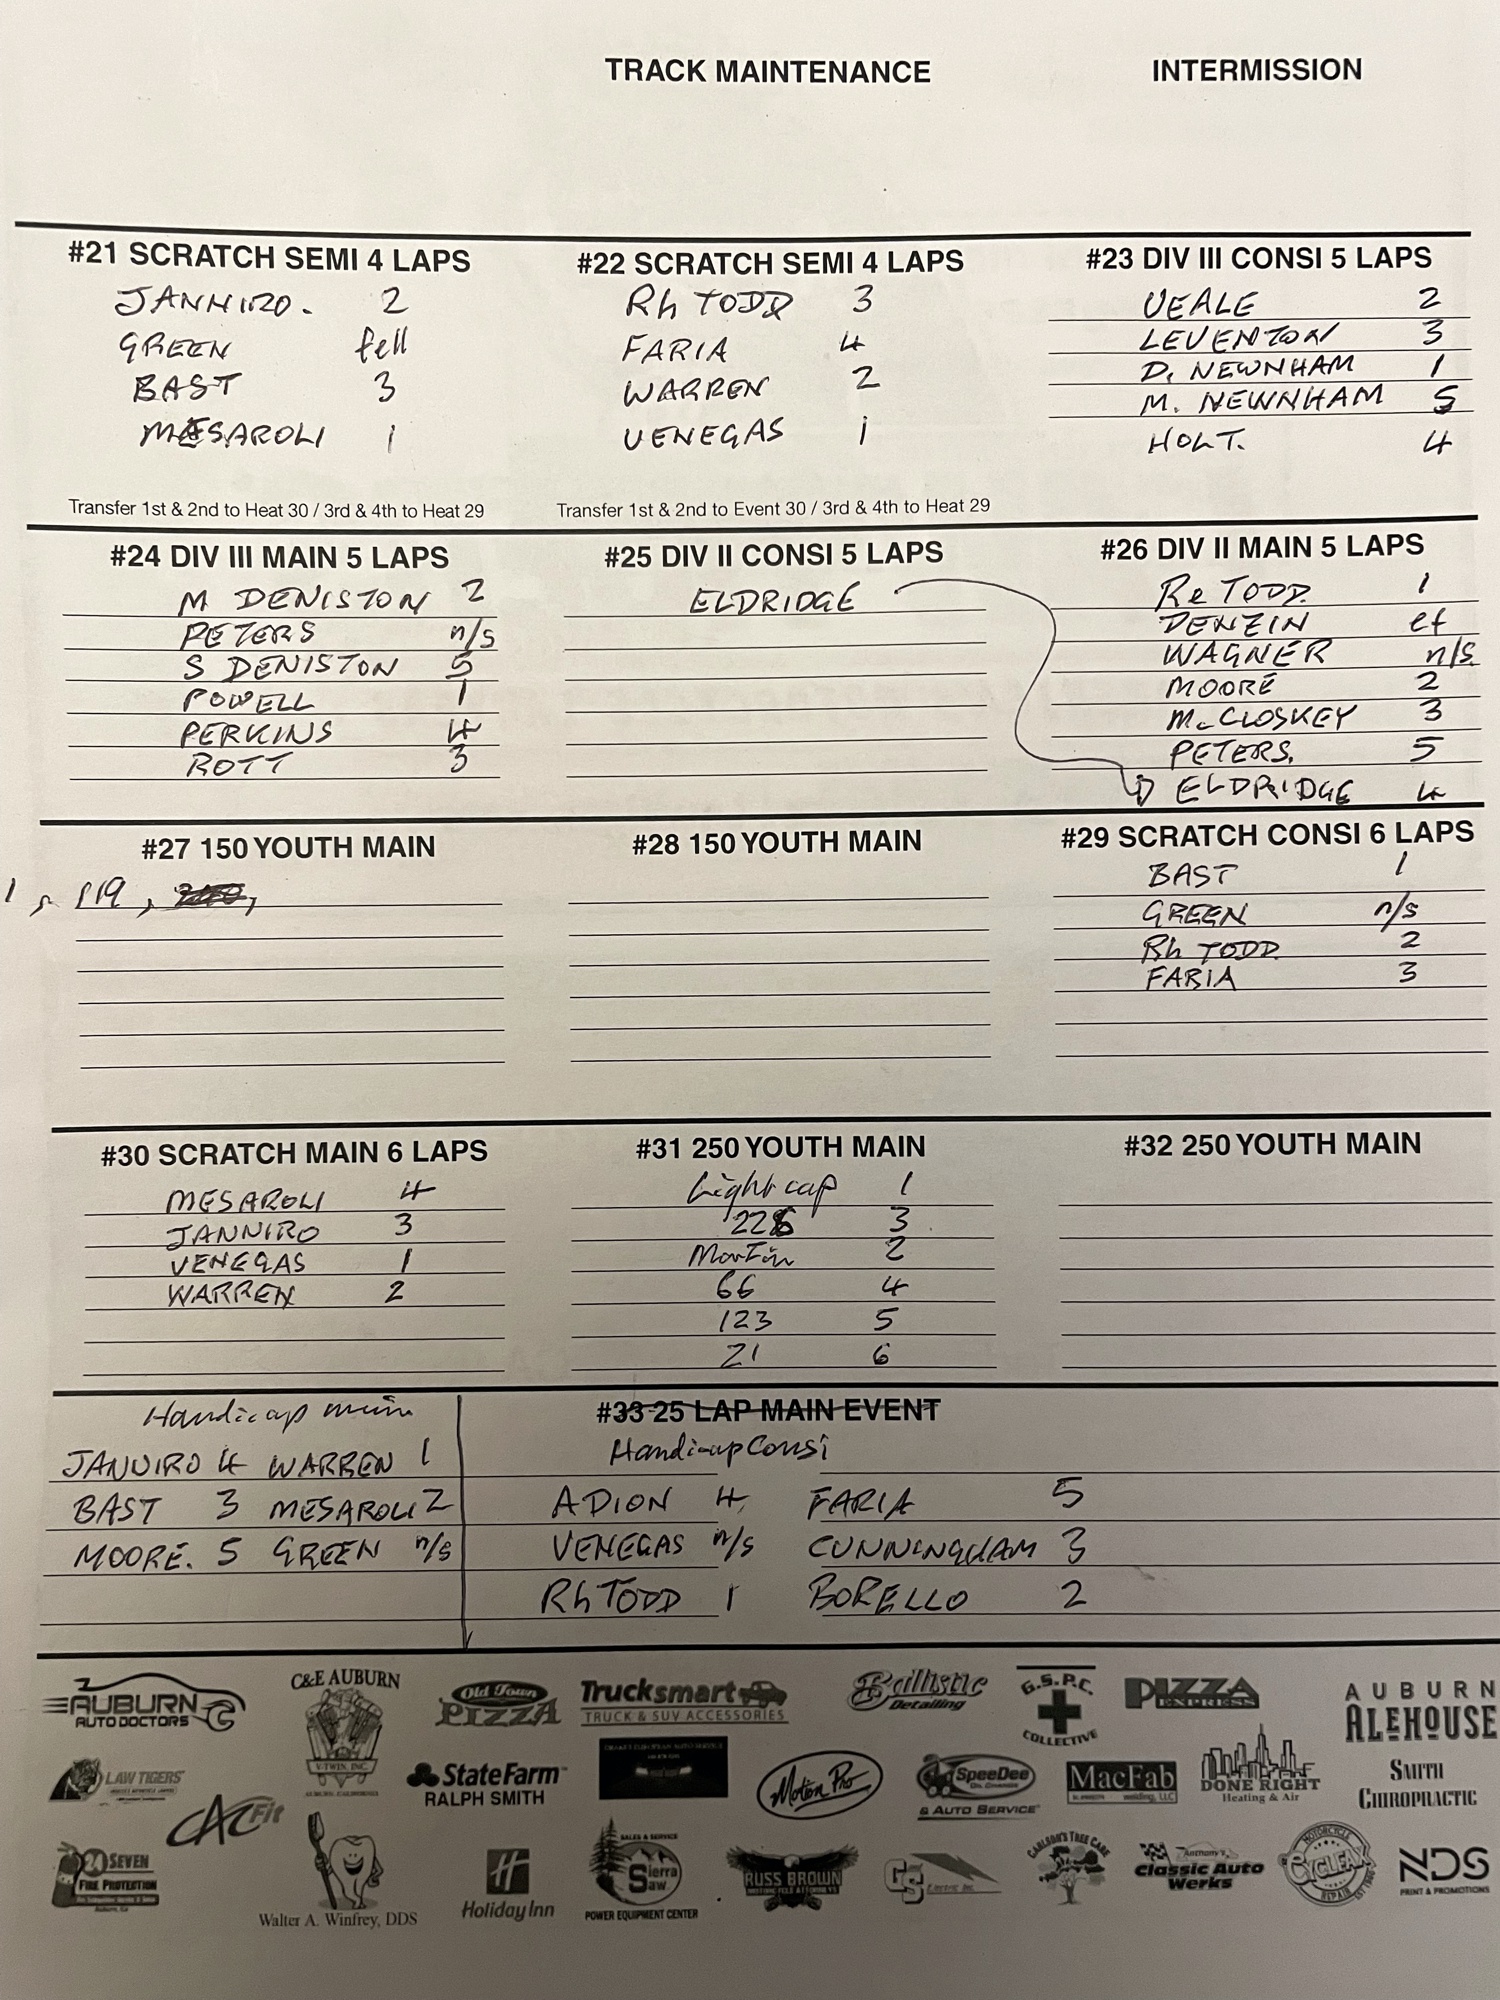 TRACK MAINTENANCE
INTERMISSION
#21 SCRATCH SEMI 4 LAPS
JANNIRO. 2
GREEN fell
BAST 3
MESAROLI 1
Transfer 1st & 2nd to Heat 30 / 3rd & 4th to Heat 29
#22 SCRATCH SEMI 4 LAPS
Rh TODD 3
FARIA 4
WARREN 2
VENEGAS 1
Transfer 1st & 2nd to Event 30 / 3rd & 4th to Heat 29
#23 DIV III CONSI 5 LAPS
VEALE 2
LEVENTON 3
D. NEWNHAM 1
M. NEWNHAM 5
HOLT. 4
#24 DIV III MAIN 5 LAPS
M DENISTON 2
PETERS n/s
S DENISTON 5
POWELL 1
PERKINS 4
ROTT 3
#25 DIV II CONSI 5 LAPS
ELDRIDGE
#26 DIV II MAIN 5 LAPS
Re TODD. 1
DENZIN ef
WAGNER n/s
MOORE 2
McCLOSKEY 3
PETERS. 5
ELDRIDGE 4
#27 150 YOUTH MAIN
1, 119,
#28 150 YOUTH MAIN
#29 SCRATCH CONSI 6 LAPS
BAST 1
GREEN n/s
Rh TODD 2
FARIA 3
#30 SCRATCH MAIN 6 LAPS
MESAROLI 4
JANNIRO 3
VENEGAS 1
WARREN 2
#31 250 YOUTH MAIN
Lightcap 1
226 3
Martin 2
66 4
123 5
21 6
#32 250 YOUTH MAIN
Handicap main
JANNIRO 4 WARREN 1
BAST 3 MESAROLI 2
MOORE. 5 GREEN n/s
#33 25 LAP MAIN EVENT
Handicap Consi
ADION 4 FARIA 5
VENEGAS n/s CUNNINGHAM 3
Rh TODD 1 BORELLO 2
AUBURN
AUTO DOCTORS
C&E AUBURN
V-TWIN, INC.
AUBURN, CALIFORNIA
Old Town
PIZZA
Trucksmart
TRUCK & SUV ACCESSORIES
Ballistic
Detailing
G.S.P.C.
COLLECTIVE
PIZZA
EXPRESS
AUBURN
ALEHOUSE
LAW TIGERS
StateFarm
RALPH SMITH
Motion Pro
SpeeDee
OIL CHANGE
& AUTO SERVICE
MacFab
welding, LLC
DONE RIGHT
Heating & Air
SMITH
CHIROPRACTIC
CAC Fit
24 SEVEN
FIRE PROTECTION
Walter A. Winfrey, DDS
Holiday Inn
SALES & SERVICE
Sierra
Saw
POWER EQUIPMENT CENTER
RUSS BROWN
GS
Electric Inc.
CARLSON'S TREE CARE
Anthony's
Classic Auto
Werks
MOTORCYCLE
CYCLEFAX
REPAIR
NDS
PRINT & PROMOTIONS